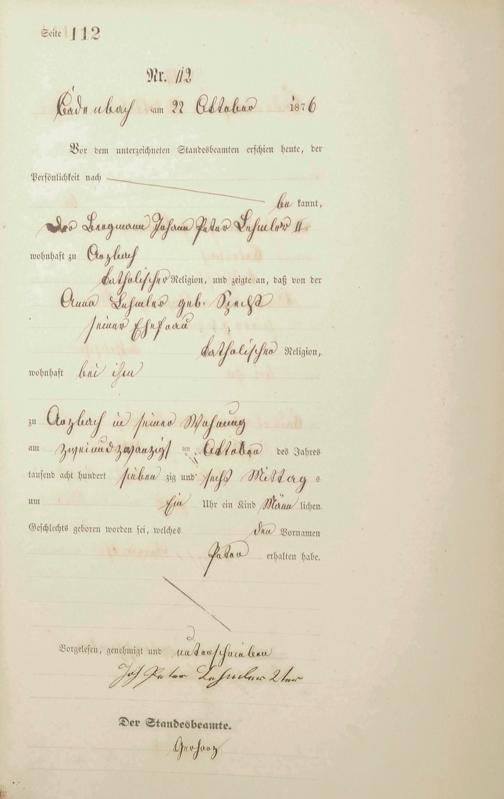 Seite 112
Nr. 112
Cadenbach am 22 Oktober 1876
Vor dem unterzeichneten Standesbeamten erschien heute, der
Persönlichkeit nach
bekannt,
der Bergmann Johann Peter Lehmler II
wohnhaft zu Arzbach
katholischer Religion, und zeigte an, daß von der
Anna Lehmler geb. Specht
seiner Ehefrau
katholischer Religion,
wohnhaft bei ihm
zu Arzbach in seiner Wohnung
am zweiundzwanzigst en Oktober des Jahres
tausend acht hundert siebenzig und sechs Mittags
um Ein Uhr ein Kind Männlichen
Geschlechts geboren worden sei, welches den Vornamen
Peter erhalten habe.
Vorgelesen, genehmigt und unterschrieben
Joh Peter Lehmler 2ter
Der Standesbeamte.
Gerharz